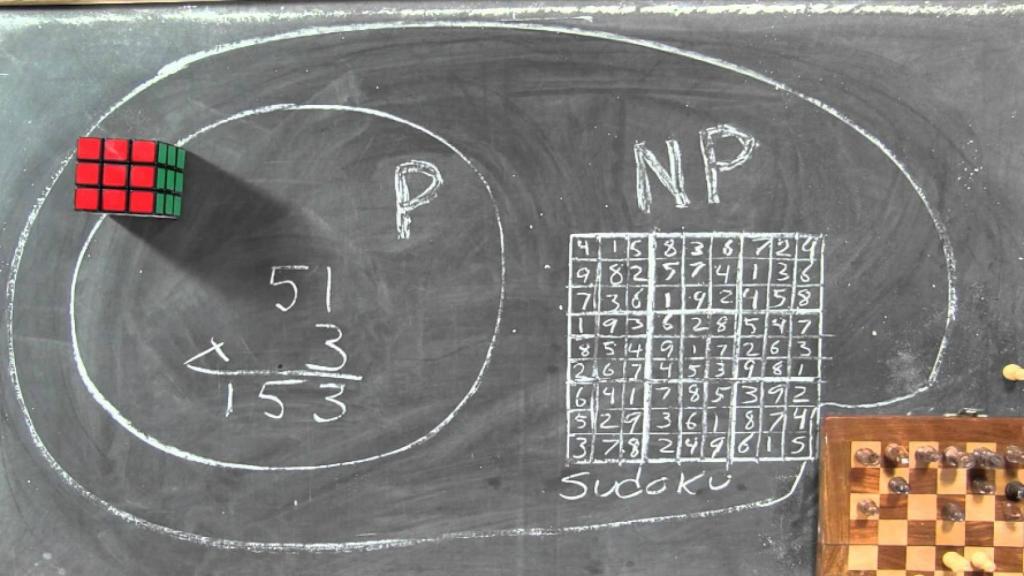 P
NP
51
× 3
153
4 1 5 8 3 6 7 2 4
9 8 2 5 7 4 1 3 6
7 3 6 1 9 2 4 5 8
1 9 3 6 2 8 5 4 7
8 5 4 9 1 7 2 6 3
2 6 7 4 5 3 9 8 1
6 4 1 7 8 5 3 9 2
5 2 9 3 6 1 8 7 4
3 7 8 2 4 9 6 1 5
Sudoku